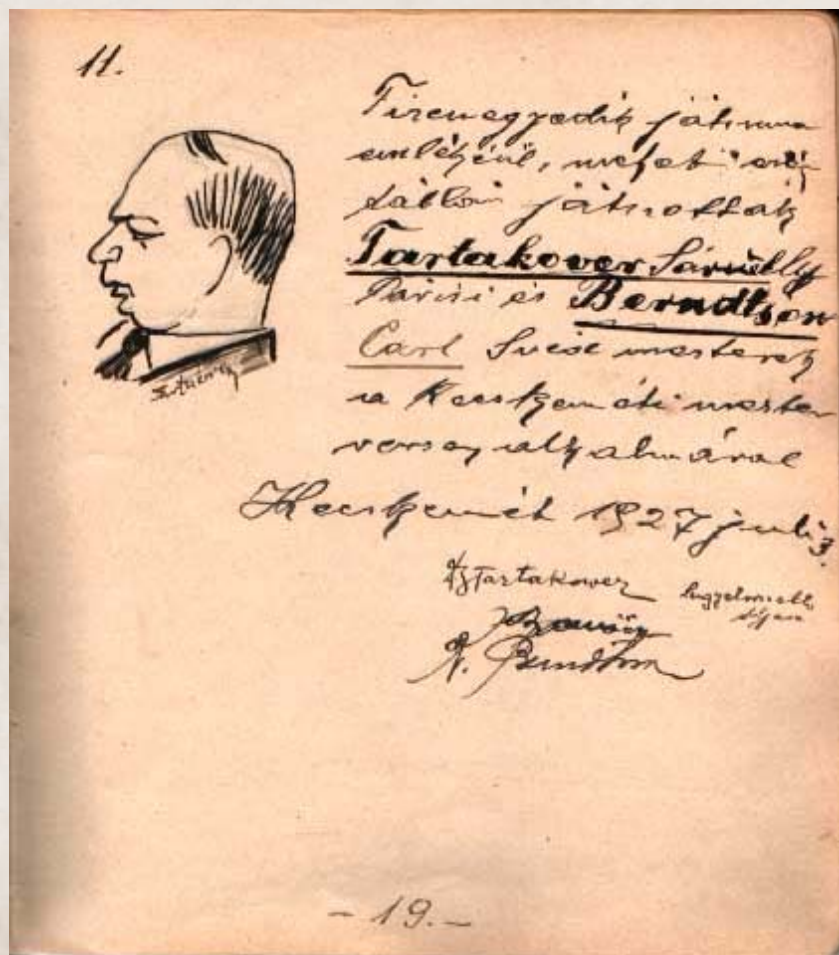 11.
Tizenegyedik játszma
emlékéül, melyet ezen
táblán játszottak
Tartakover Sáruelly
Párisi és Berndtson
Carl Svéd mesterek
a Kecskeméti mester
verseny alkalmával
Kecskemét 1927 juli 3.
Tartakower
- 19. -